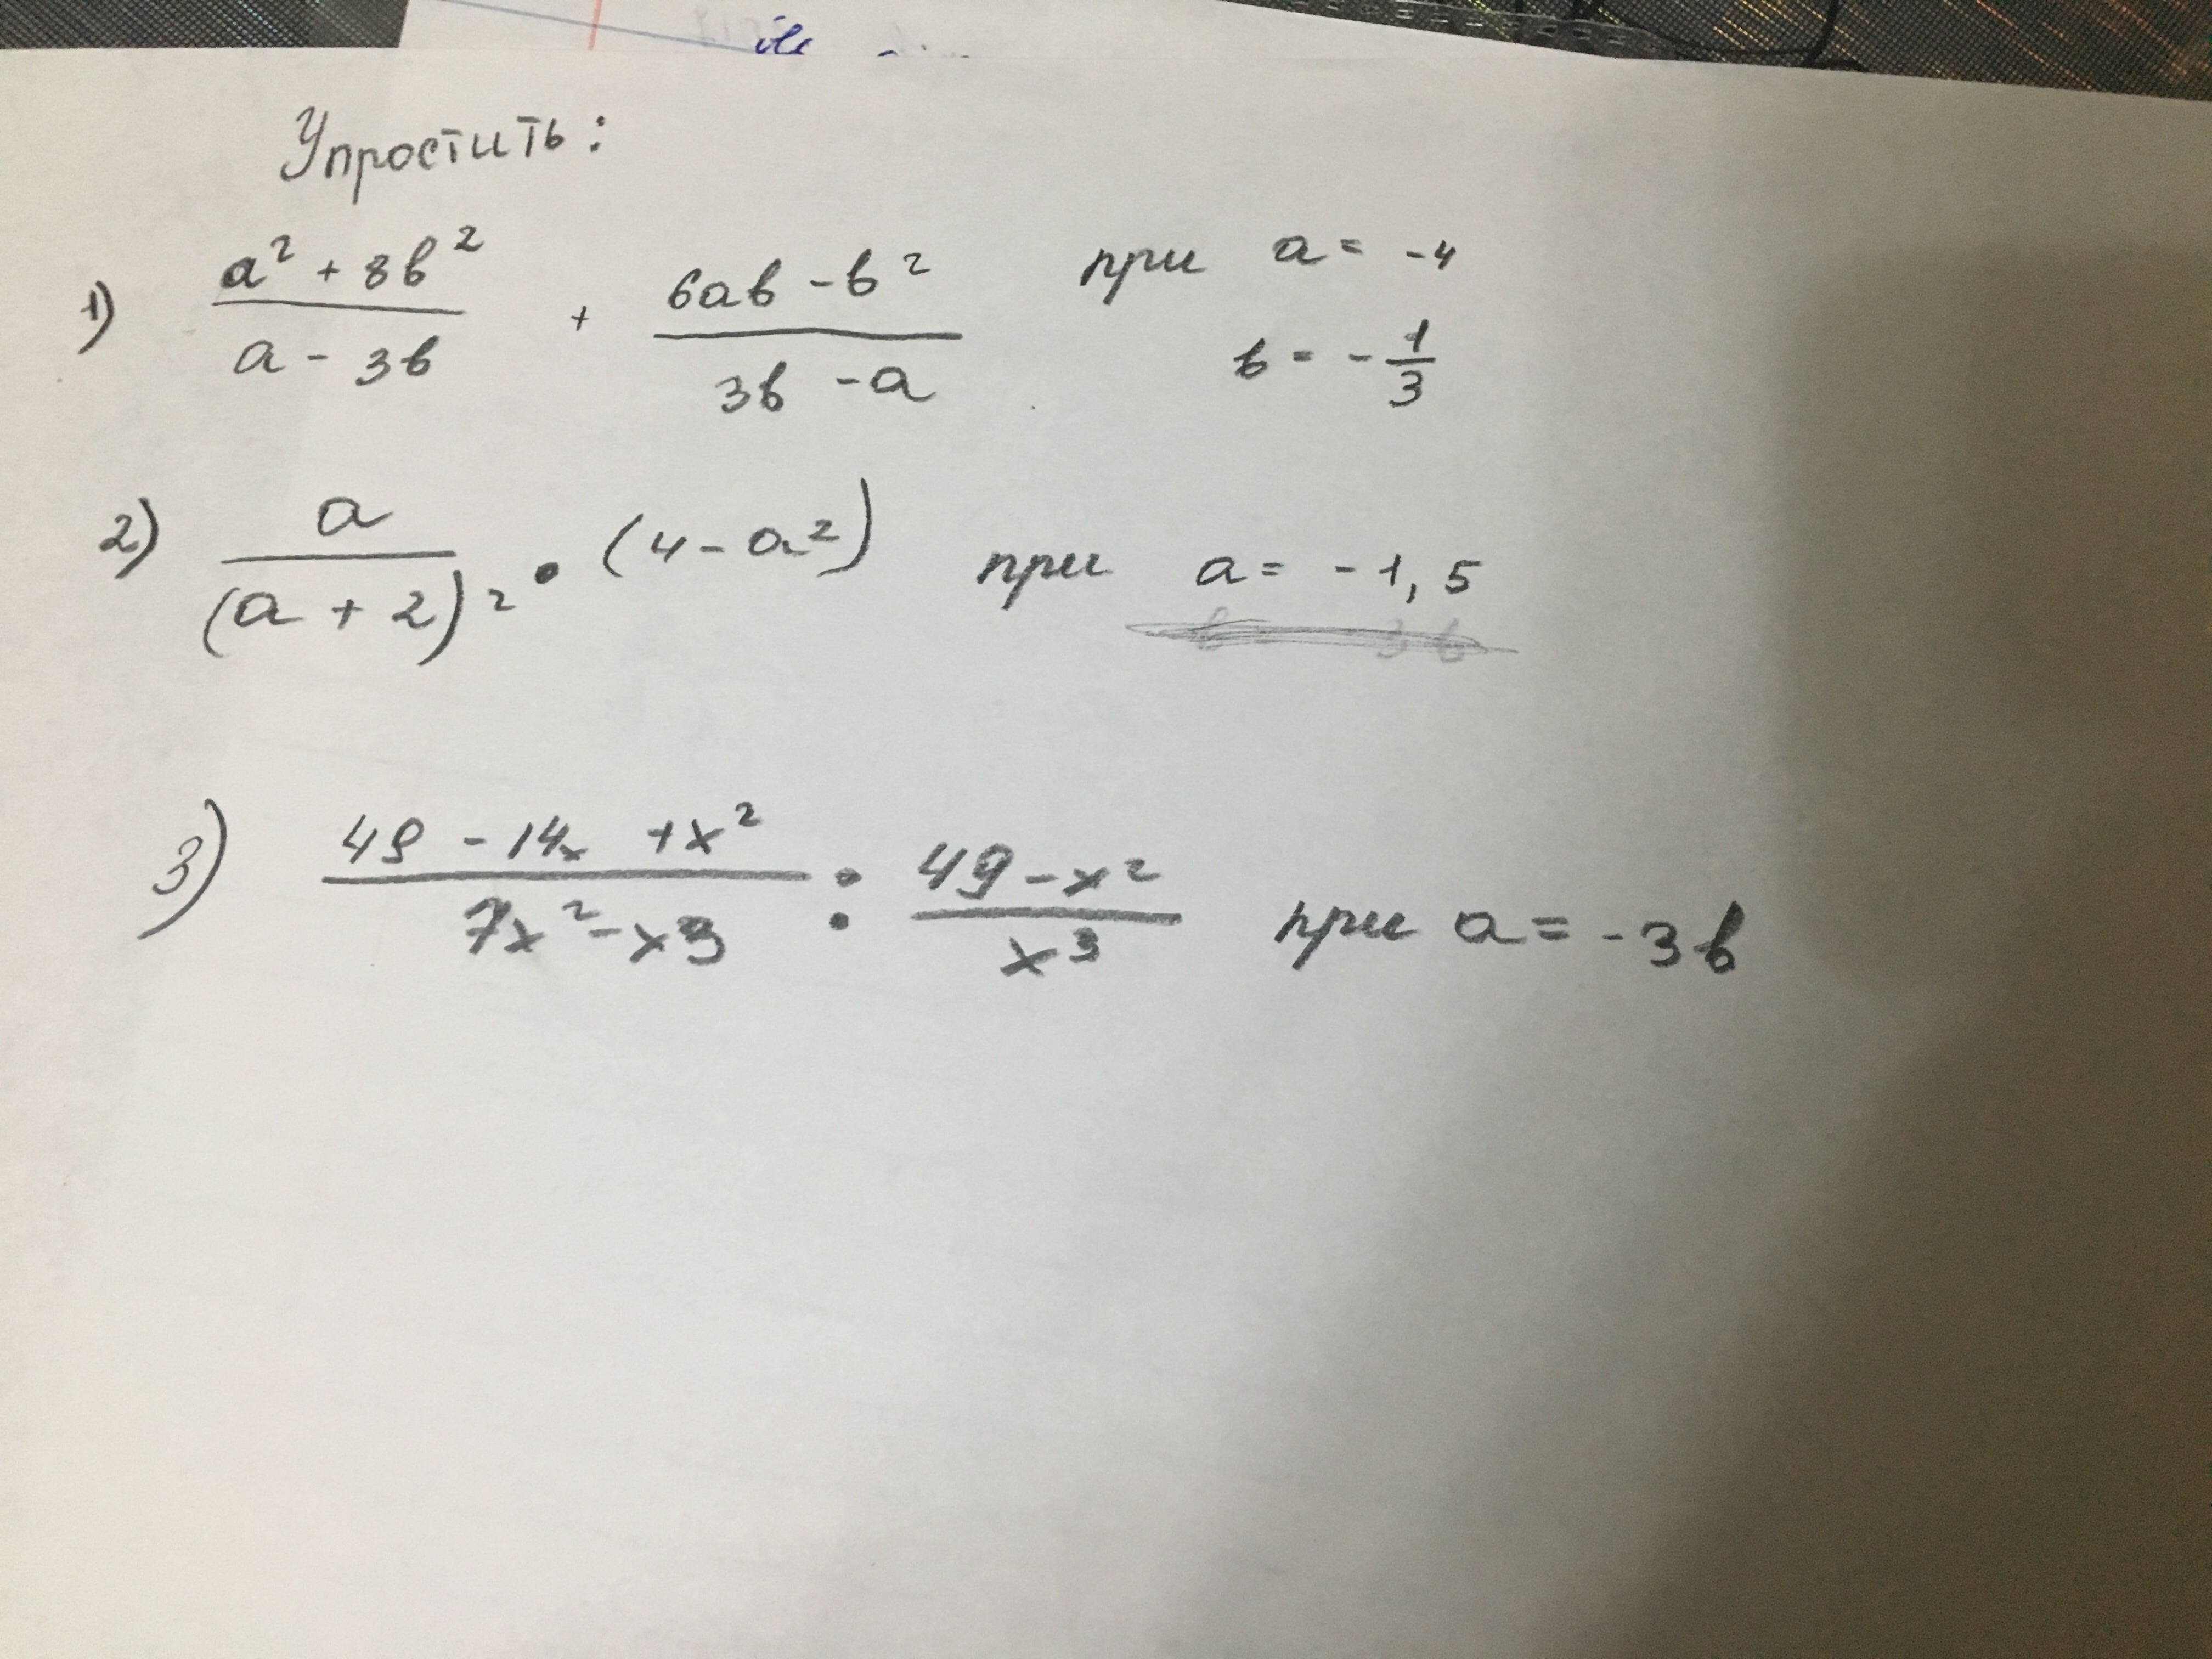 Упростить:
1) (a² + 8b²)/(a - 3b) + (6ab - b²)/(3b - a) при a = -4
b = -1/3
2) a/(a + 2)² • (4 - a²) при a = -1,5
3) (49 - 14x + x²)/(7x² - x3) : (49 - x²)/(x³) при a = -3b